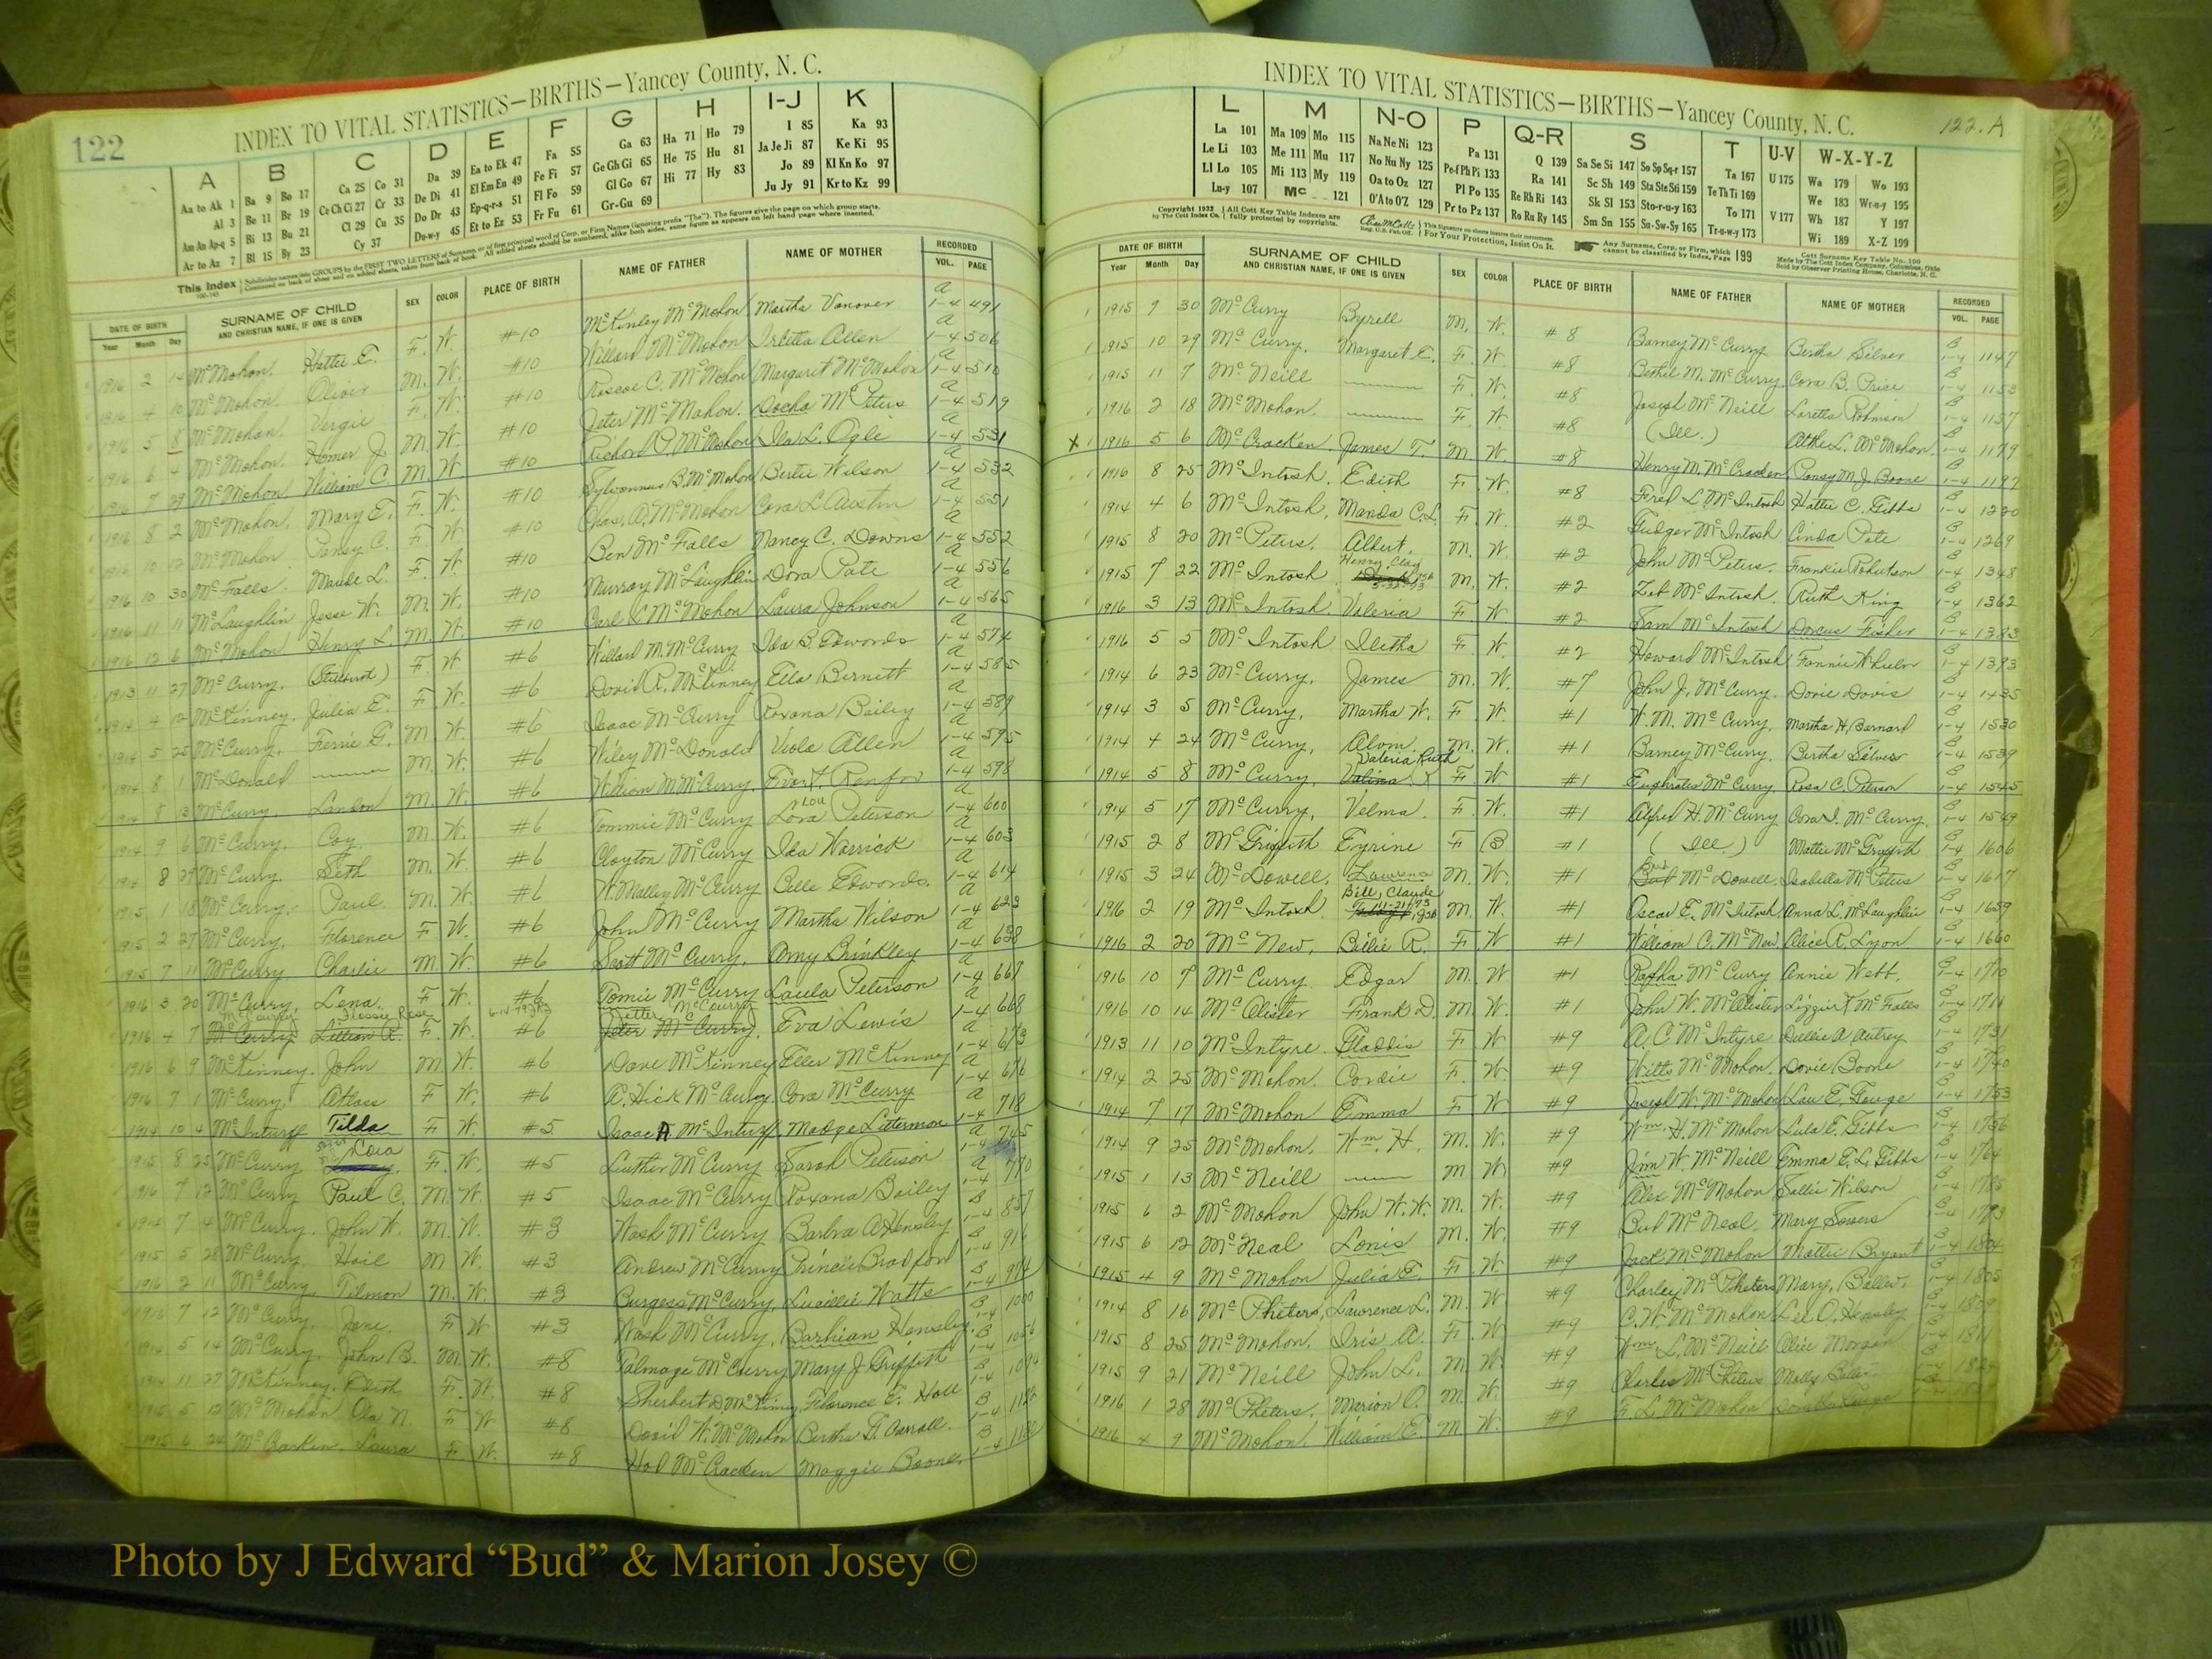 122
INDEX TO VITAL STATISTICS—BIRTHS—Yancey County, N. C.
A B C D E F G H I-J K
Aa to Ak 1 Ba 9 Bo 17 Ca 25 Co 31 Da 39 Ea to Ek 47 Fa 55 Ga 63 Ha 71 Ho 79 I 85 Ka 93
Al 3 Be 11 Br 19 Ce Ch Ci 27 Cr 33 De Di 41 El Em En 49 Fe Fi 57 Ge Gh Gi 65 He 75 Hu 81 Ja Je Ji 87 Ke Ki 95
Am An Ap-q 5 Bi 13 Bu 21 Cl 29 Cu 35 Do Dr 43 Ep-q-r-s 51 Fl Fo 59 Gl Go 67 Hi 77 Hy 83 Jo 89 Kl Kn Ko 97
Ar to Az 7 Bl 15 By 23 Cy 37 Du-w-y 45 Et to Ez 53 Fr Fu 61 Gr-Gu 69 Ju Jy 91 Kr to Kz 99
DATE OF BIRTH SURNAME OF CHILD AND CHRISTIAN NAME, IF ONE IS GIVEN SEX COLOR PLACE OF BIRTH NAME OF FATHER NAME OF MOTHER RECORDED
Year Month Day VOL. PAGE
1916 2 McMohon. Hattie E. F. W. #10 McKinley McMohon Martha Vanover a 1-4 491
1916 4 10 McMohon. Oliver M. W. #10 Willard McMohon Allen a 1-4 506
1916 5 8 McMohon. Vergie F. W. #10 Roscoe C. McMohon Margaret McMohon a 1-4 510
1916 6 4 McMohon. Homer J. M. W. #10 Jeter McMahon. Docha McPeters a 1-4 519
1916 7 29 McMohon William C. M. W. #10 McMohon Ida L. Ogle a 1-4 531
1916 8 2 McMohon. Mary E. F. W. #10 Sylvonnus B. McMohon Bertie Wilson a 1-4 532
1916 10 12 McMohon Pansy C. F. W. #10 Chas. A. McMohon Cora L Austin a 1-4 551
1916 10 30 McFalls. Maude L. F. W. #10 Ben McFalls Nancy C. Downs a 1-4 552
1916 11 11 McLaughlin Jesse W. M. W. #10 Murray McLaughlin Dora Pate a 1-4 556
1916 12 6 McMohon Henry L. M. W. #10 Carl L McMohon Laura Johnson a 1-4 565
1913 11 27 McCurry. (Stillborn) F. W. #6 Willard M. McCurry Ida B. Edwords a 1-4 574
1914 4 12 McKinney. Julia E. F. W. #6 David R. McKinney Ella Burnett a 1-4 585
1914 5 25 McCurry. Ferrie G. M. W. #6 Isaac McCurry Roxana Bailey a 1-4 589
1914 8 1 McDonald M. W. #6 Wiley McDonald Viola Allen a 1-4 595
1914 8 13 McCurry. Landon M. W. #6 William M McCurry. Renfro a 1-4 598
1914 9 6 McCurry. Coy. M. W. #6 Tommie McCurry Lou Lora Peterson a 1-4 600
1914 8 29 McCurry. Seth M. W. #6 Clayton McCurry Ida Warrick a 1-4 603
1915 1 18 McCurry. Paul M. W. #6 W. Malley McCurry Belle Edwords. a 1-4 614
1915 2 27 McCurry, Florence F. W. #6 John McCurry Martha Wilson a 1-4 623
1915 7 11 McCurry Charlie M. W. #6 Scott McCurry. Amy Brinkley a 1-4 638
1916 3 20 McCurry, Lena. F. W. #6 Tomie McCurry Laula Peterson a 1-4 667
1916 4 7 McCurry Lillian R. F. W. #6 Jeter McCurry. Eva Lewis a 1-4 668
1916 6 9 McKinney. John M. W. #6 Dave McKinney Eller McKinney a 1-4 673
1916 7 1 McCurry. Atlass F. W. #6 A. Hick McCurry. Cora McCurry a 1-4 676
1914 10 4 McInturff Tilda F. W. #5 Isaac A McInturff. Madge Letterman a 1-4 718
1915 8 25 McCurry Dora F. W. #5 Luther McCurry Sarah Peterson a 1-4 745
1916 7 12 McCurry Paul C. M. W. #5 Isaac McCurry Roxana Bailey a 1-4 770
1914 7 4 McCurry. John W. M. W. #3 Wash McCurry Barbra A Hensley B 1-4 857
1915 5 28 McCurry. Hoil M. W. #3 Andrew McCurry Princie Bradford B 1-4 916
1916 2 11 McCurry. Tilmon M. W. #3 Burgess McCurry. Lucillie Watts B 1-4
1916 7 12 McCurry. Jane. F. W. #3 Wash McCurry, Barhian Hensley. B 1-4 1000
1914 5 14 McCurry. John B. M. W. #8 Talmage McCurry Mary J Griffith B 1-4
1914 11 27 McKinney. Edith F. W. #8 Florence E. Hall B 1-4 1094
1915 5 12 McMohon. Ola N. F. W. #8 David W. McMohon Bertha D. Carroll. B 1-4
1915 6 24 McCracken. Laura F. W. #8 Hol McCracken Maggie Boone. B 1-4
INDEX TO VITAL STATISTICS—BIRTHS—Yancey County, N. C.
122.A
L M N-O P Q-R S T U-V W-X-Y-Z
La 101 Ma 109 Mo 115 Na Ne Ni 123 Pa 131 Q 139 Sa Se Si 147 So Sp Sq-r 157 Ta 167 U 175 Wa 179 Wo 193
Le Li 103 Me 111 Mu 117 No Nu Ny 125 Pe-f Ph Pi 133 Ra 141 Sc Sh 149 Sta Ste Sti 159 Te Th Ti 169 We 183 Wr-u-y 195
Ll Lo 105 Mi 113 My 119 Oa to Oz 127 Pl Po 135 Re Rh Ri 143 Sk Sl 153 Sto-r-u-y 163 To 171 V 177 Wh 187 Y 197
Lu-y 107 Mc 121 O'A to O'Z 129 Pr to Pz 137 Ro Ru Ry 145 Sm Sn 155 Su-Sw-Sy 165 Tr-u-w-y 173 Wi 189 X-Z 199
Copyright 1932 by The Cott Index Co. All Cott Key Table Indexes are fully protected by copyrights. For Your Protection, Insist On It. Any Surname, Corp. or Firm, which cannot be classified by Index, Page 199 Cott Surname Key Table No. 100 Made by The Cott Index Company, Columbus, Ohio Sold by Observer Printing House, Charlotte, N. C.
DATE OF BIRTH SURNAME OF CHILD AND CHRISTIAN NAME, IF ONE IS GIVEN SEX COLOR PLACE OF BIRTH NAME OF FATHER NAME OF MOTHER RECORDED
Year Month Day VOL. PAGE
1915 9 30 McCurry Byrell M. W. #8 Barney McCurry Bertha Silver B 1-4 1147
1915 10 29 McCurry. Margaret E. F. W. #8 Bethel M. McCurry. Cora B. Price B 1-4 1153
1915 11 7 McNeill F. W. #8 Joseph McNeill Loretta Robinson B 1-4 1157
1916 2 18 McMohon. F. W. #8 (Ill.) McMohon. B 1-4 1179
X 1916 5 6 McCracken. James T. M. W. #8 Henry M. McCracken Pansy M. J. Boone B 1-4 1197
1916 8 25 McIntosh. Edith F. W. #8 Fred L. McIntosh Hattie C. Gibbs B 1-4 1220
1914 4 6 McIntosh, Manda C. L. F. W. #2 Gudger McIntosh Cinda Pate B 1-4 1269
1915 8 20 McPeters. Albert. M. W. #2 John McPeters. Frankie Robertson B 1-4 1348
1915 7 22 McIntosh Henry Clay M. W. #2 Zeb McIntosh. Ruth King B 1-4 1362
1916 3 13 McIntosh. Valeria F. W. #2 Sam McIntosh Dorcus Fisher B 1-4 1383
1916 5 5 McIntosh Iletha F. W. #2 Howard McIntosh Fannie Wheeler B 1-4 1393
1914 6 23 McCurry. James M. W. #7 John J. McCurry. Dovie Davis B 1-4 1435
1914 3 5 McCurry, Martha W. F. W. #1 W. M. McCurry. Martha H. Barnard B 1-4 1530
1914 4 24 McCurry, Alvin. M. W. #1 Barney McCurry. Bertha Silvers B 1-4 1539
1914 5 8 McCurry, Valeria Ruth F. W. #1 Euphrates McCurry Rosa C. Peterson B 1-4 1545
1914 5 17 McCurry, Velma. F. W. #1 Alfred H. McCurry Cora I. McCurry. B 1-4 1549
1915 2 8 McGriffith Eyrine F. B #1 (Ill.) Mattie McGriffith B 1-4 1606
1915 3 24 McDowell. Laurena M. W. #1 Bud McDowell. Isabella McPeters B 1-4 1617
1916 2 19 McIntosh Bill, Claude M. W. #1 Oscar E. McIntosh Anna L. McLaughlin B 1-4 1659
1916 2 20 McNew, Billie R. F. W. #1 William C. McNew. Alice R. Lyon B 1-4 1660
1916 10 7 McCurry Edgar M. W. #1 McCurry Annie Webb. B 1-4 1710
1916 10 14 McAlister Frank D. M. W. #1 John W. McAlister Lizzie K McFalls B 1-4 1711
1913 11 10 McIntyre. Gladdis F. W. #9 A. C. McIntyre Dellie A Autrey B 1-4 1731
1914 2 25 McMohon. Cordie F. W. #9 Witts McMohon. Dovie Boone B 1-4 1740
1914 7 17 McMohon Emma F. W. #9 Joseph W. McMohon Lou E. Gouge B 1-4 1753
1914 9 25 McMohon, Wm. H. M. W. #9 Wm. H. McMohon Lula E. Gibbs B 1-4 1756
1915 1 13 McNeill M W #9 Jim W. McNeill Emma E. L. Gibbs B 1-4 1764
1915 6 2 McMohon John W. W. M. W. #9 Alex McMohon Sallie Wilson B 1-4 1785
1915 6 12 McNeal Lonis M. W. #9 Bud McNeal. Mary Sowers B 1-4 1793
1915 4 9 McMohon Julia E. F. W. #9 Jack McMohon Mattie Bryant B 1-4 1804
1914 8 16 McPheters, Lawrence L. M. W. #9 Charley McPheters Mary, Ballew. B 1-4 1805
1915 8 25 McMohon, Iris A. F. W. #9 C. W. McMohon Lee O. Hensley B 1-4 1809
1915 9 21 McNeill John L. M. W. #9 Wm. L. McNeill Alice Morgan B 1-4 1811
1916 1 28 McPheters. Marion O. M. W. #9 Charles McPheters Molly B 1-4
1916 4 9 McMohon. William E. M. W. #9 F. L. McMohon
Photo by J Edward “Bud” & Marion Josey ©